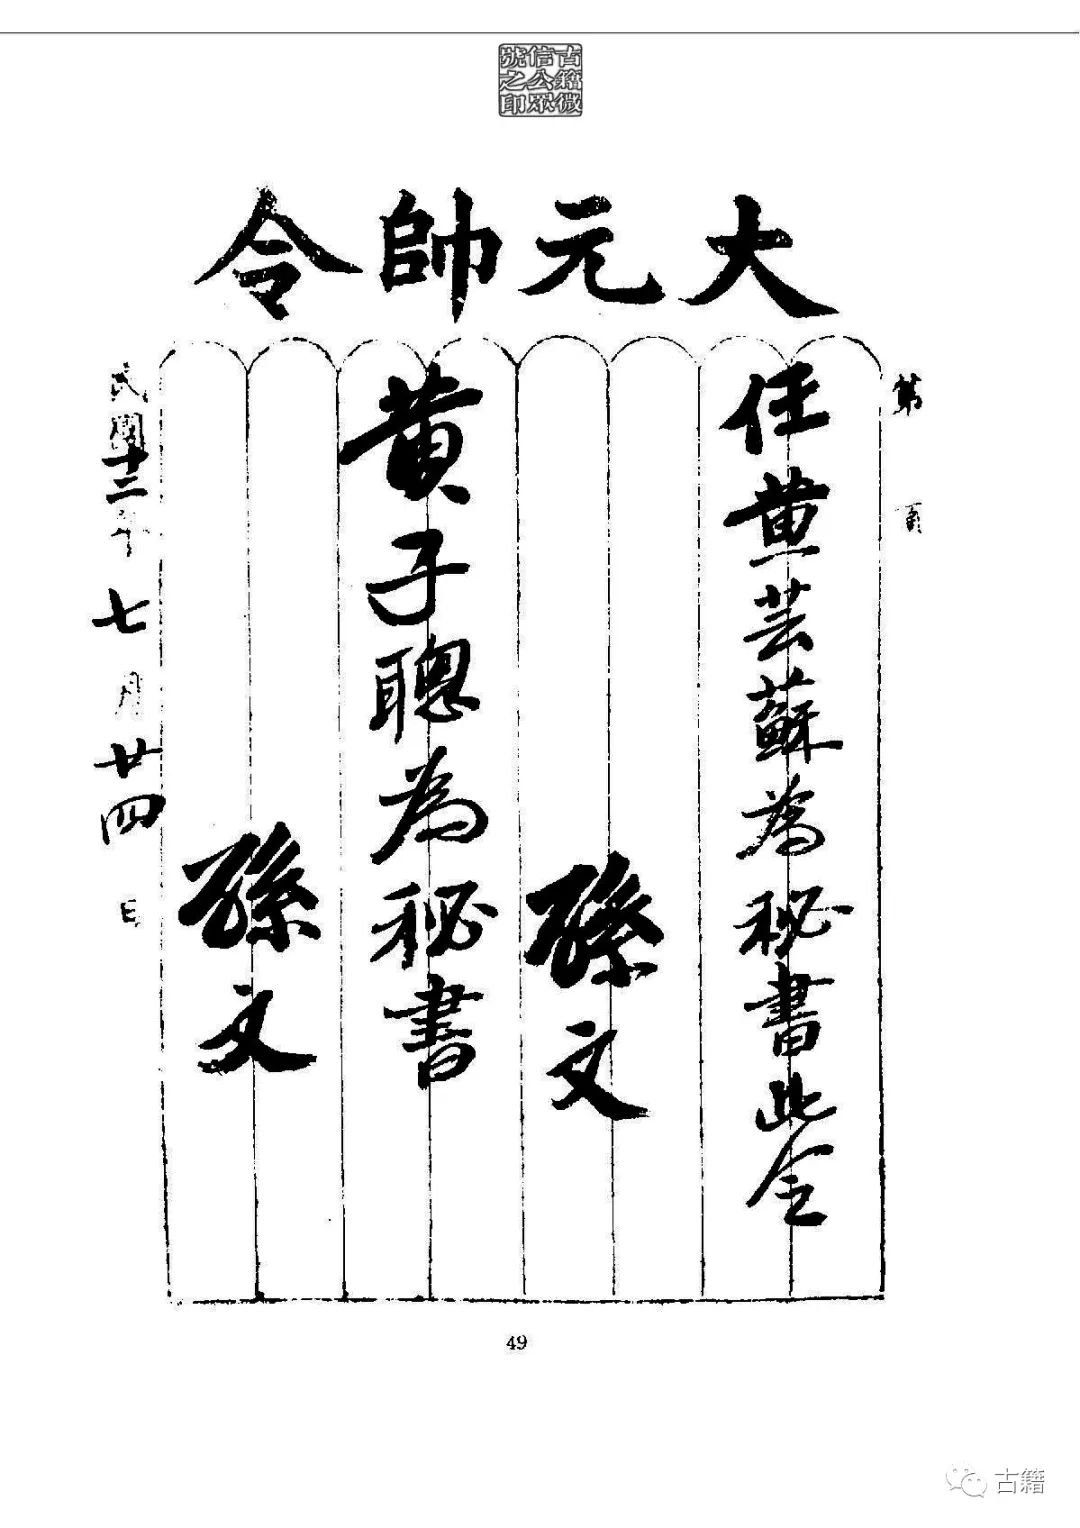 古籍微
信公眾
號之印
大元帥令
第 頁
任黄芸蘇為秘書此令
孫文
黄子聰為秘書
孫文
民國十二年七月廿四日
49
古籍